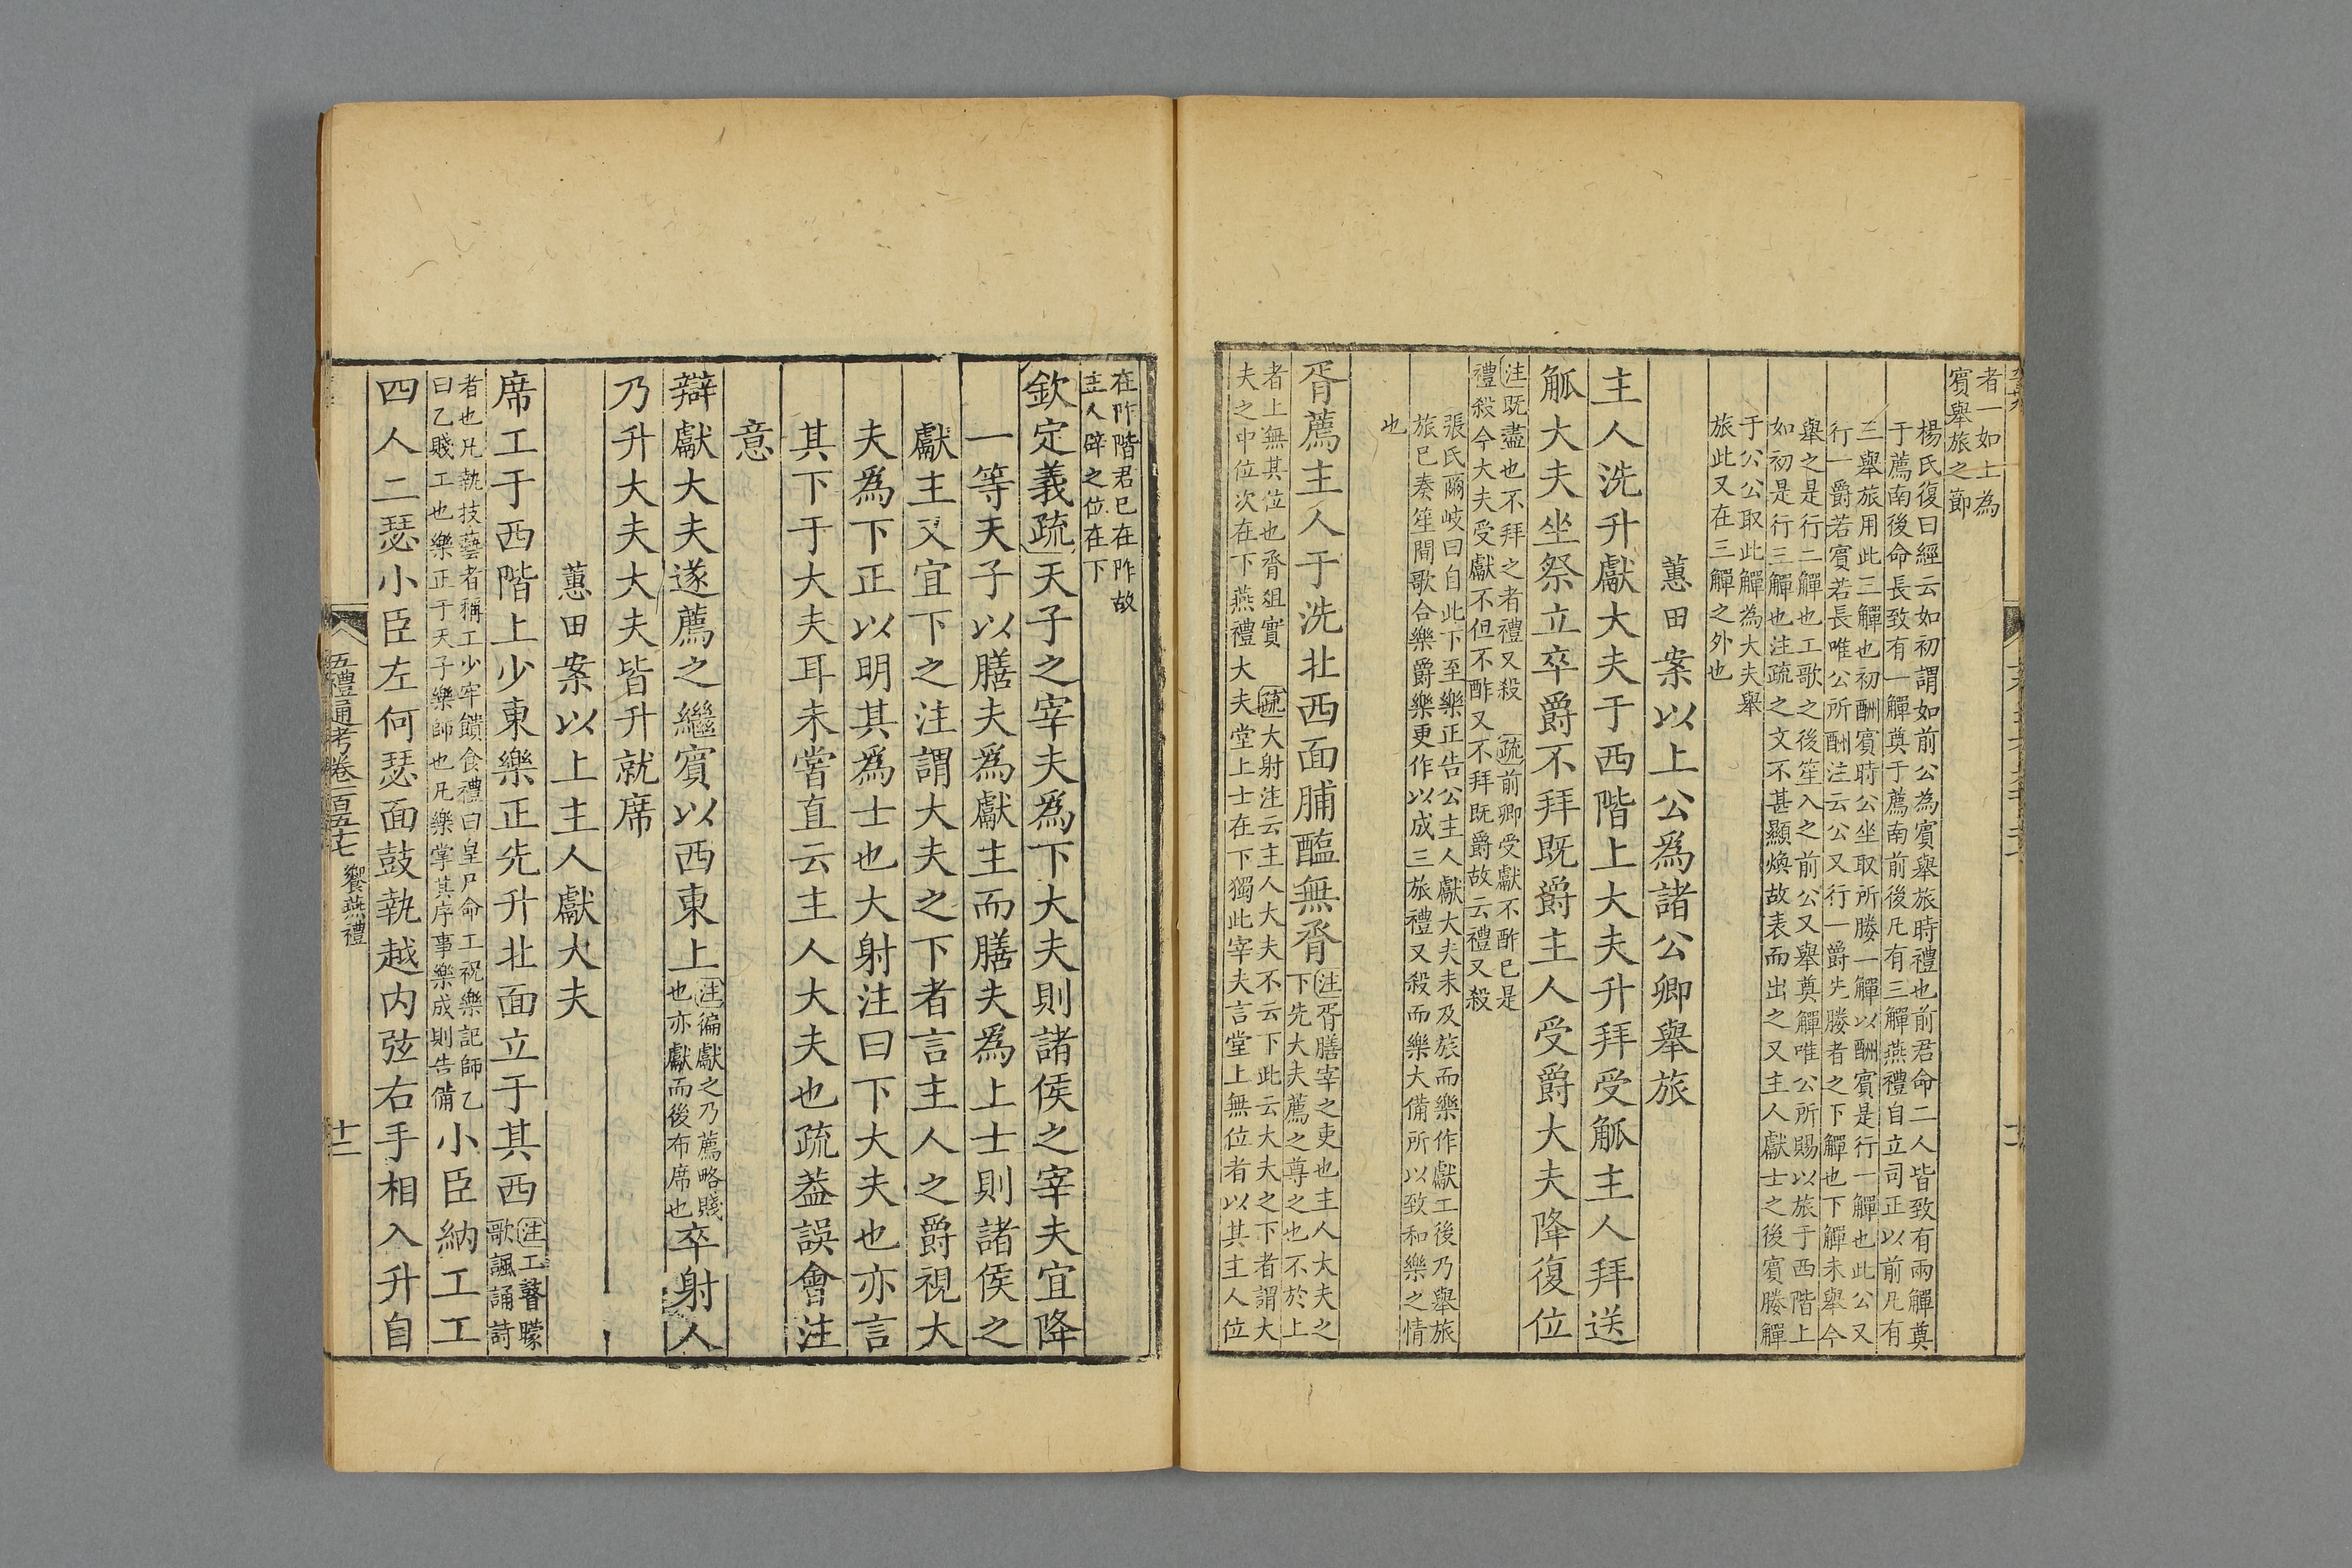 者一如上為
賓舉旅之節
楊氏復曰經云如初謂如前公為賓舉旅時禮也前君命二人皆致有兩觶奠
于薦南後命長致有一觶奠于薦南前後凡有三觶燕禮自立司正以前凡有
三舉旅用此三觶也初酬賓時公坐取所媵一觶以酬賓是行一觶也此公又
行一爵若賓若長唯公所酬注云公又行一爵先媵者之下觶也下觶未舉今
舉之是行二觶也工歌之後笙入之前公又舉奠觶唯公所賜以旅于西階上
如初是行三觶也注疏之文不甚顯煥故表而出之又主人獻士之後賓媵觶
于公公取此觶為大夫舉
旅此又在三觶之外也
蕙田案以上公爲諸公卿舉旅
主人洗升獻大夫于西階上大夫升拜受觚主人拜送
觚大夫坐祭立卒爵不拜既爵主人受爵大夫降復位
注既盡也不拜之者禮又殺 疏前卿受獻不酢已是
禮殺今大夫受獻不但不酢又不拜既爵故云禮又殺
張氏爾岐曰自此下至樂正告公主人獻大夫未及旅而樂作獻工後乃舉旅
旅已奏笙間歌合樂爵樂更作以成三旅禮又殺而樂大備所以致和樂之情
也
胥薦主人于洗北西面脯醢無脀
注胥膳宰之吏也主人大夫之
下先大夫薦之尊之也不於上
者上無其位也脀俎實 疏大射注云主人大夫不云下此云大夫之下者謂大
夫之中位次在下燕禮大夫堂上士在下獨此宰夫言堂上無位者以其主人位
在阼階君已在阼故
主人辟之位在下
欽定義疏天子之宰夫爲下大夫則諸侯之宰夫宜降
一等天子以膳夫爲獻主而膳夫爲上士則諸侯之
獻主又宜下之注謂大夫之下者言主人之爵視大
夫爲下正以明其爲士也大射注曰下大夫也亦言
其下于大夫耳未嘗直云主人大夫也疏葢誤會注
意
辯獻大夫遂薦之繼賓以西東上
注徧獻之乃薦略賤
也亦獻而後布席也
卒射人
乃升大夫大夫皆升就席
蕙田案以上主人獻大夫
席工于西階上少東樂正先升北面立于其西
注工瞽矇
歌諷誦詩
者也凡執技藝者稱工少牢饋食禮曰皇尸命工祝樂記師乙
曰乙賤工也樂正于天子樂師也凡樂掌其序事樂成則告備
小臣納工工
四人二瑟小臣左何瑟面鼓執越内弦右手相入升自
五禮通考卷一百五十七 饗燕禮
十二